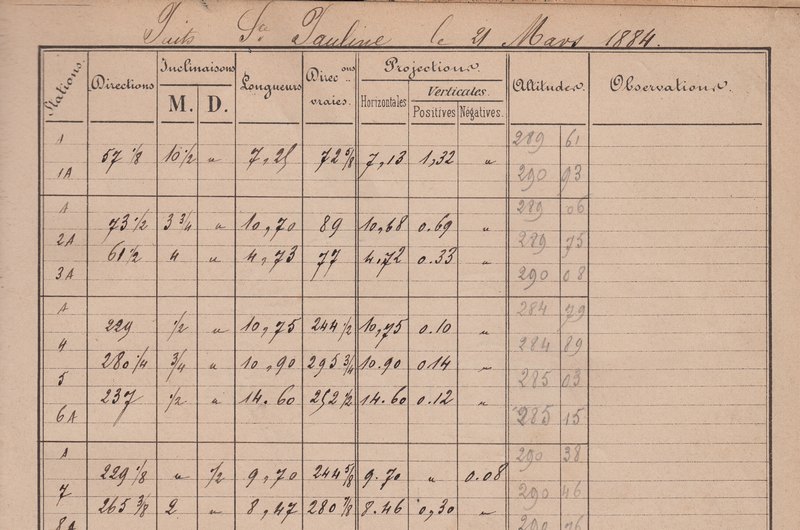 Puits Ste Pauline le 21 Mars 1884.
Stations Directions Inclinaisons M. D. Longueurs Direcons vraies. Projections. Horizontales Verticales. Positives Négatives. Altitudes. Observations.
A 289 61
57 1/8 10 1/2 " 7,25 72 5/8 7,13 1,32 "
1A 290 93
A 289 06
73 1/2 3 3/4 " 10,70 89 10,68 0.69 "
2A 289 75
61 1/2 4 " 4,73 77 4,72 0.33 "
3A 290 08
A 284 79
229 1/2 " 10,75 244 1/2 10,75 0.10 "
4 284 89
280 1/4 3/4 " 10,90 295 3/4 10.90 0.14 "
5 285 03
237 1/2 " 14.60 252 1/2 14.60 0.12 "
6A 285 15
A 290 38
229 1/8 " 1/2 9,70 244 5/8 9.70 " 0.08
7 290 46
265 3/8 2 " 8,47 280 7/8 8.46 0,30 "
8A 290 76